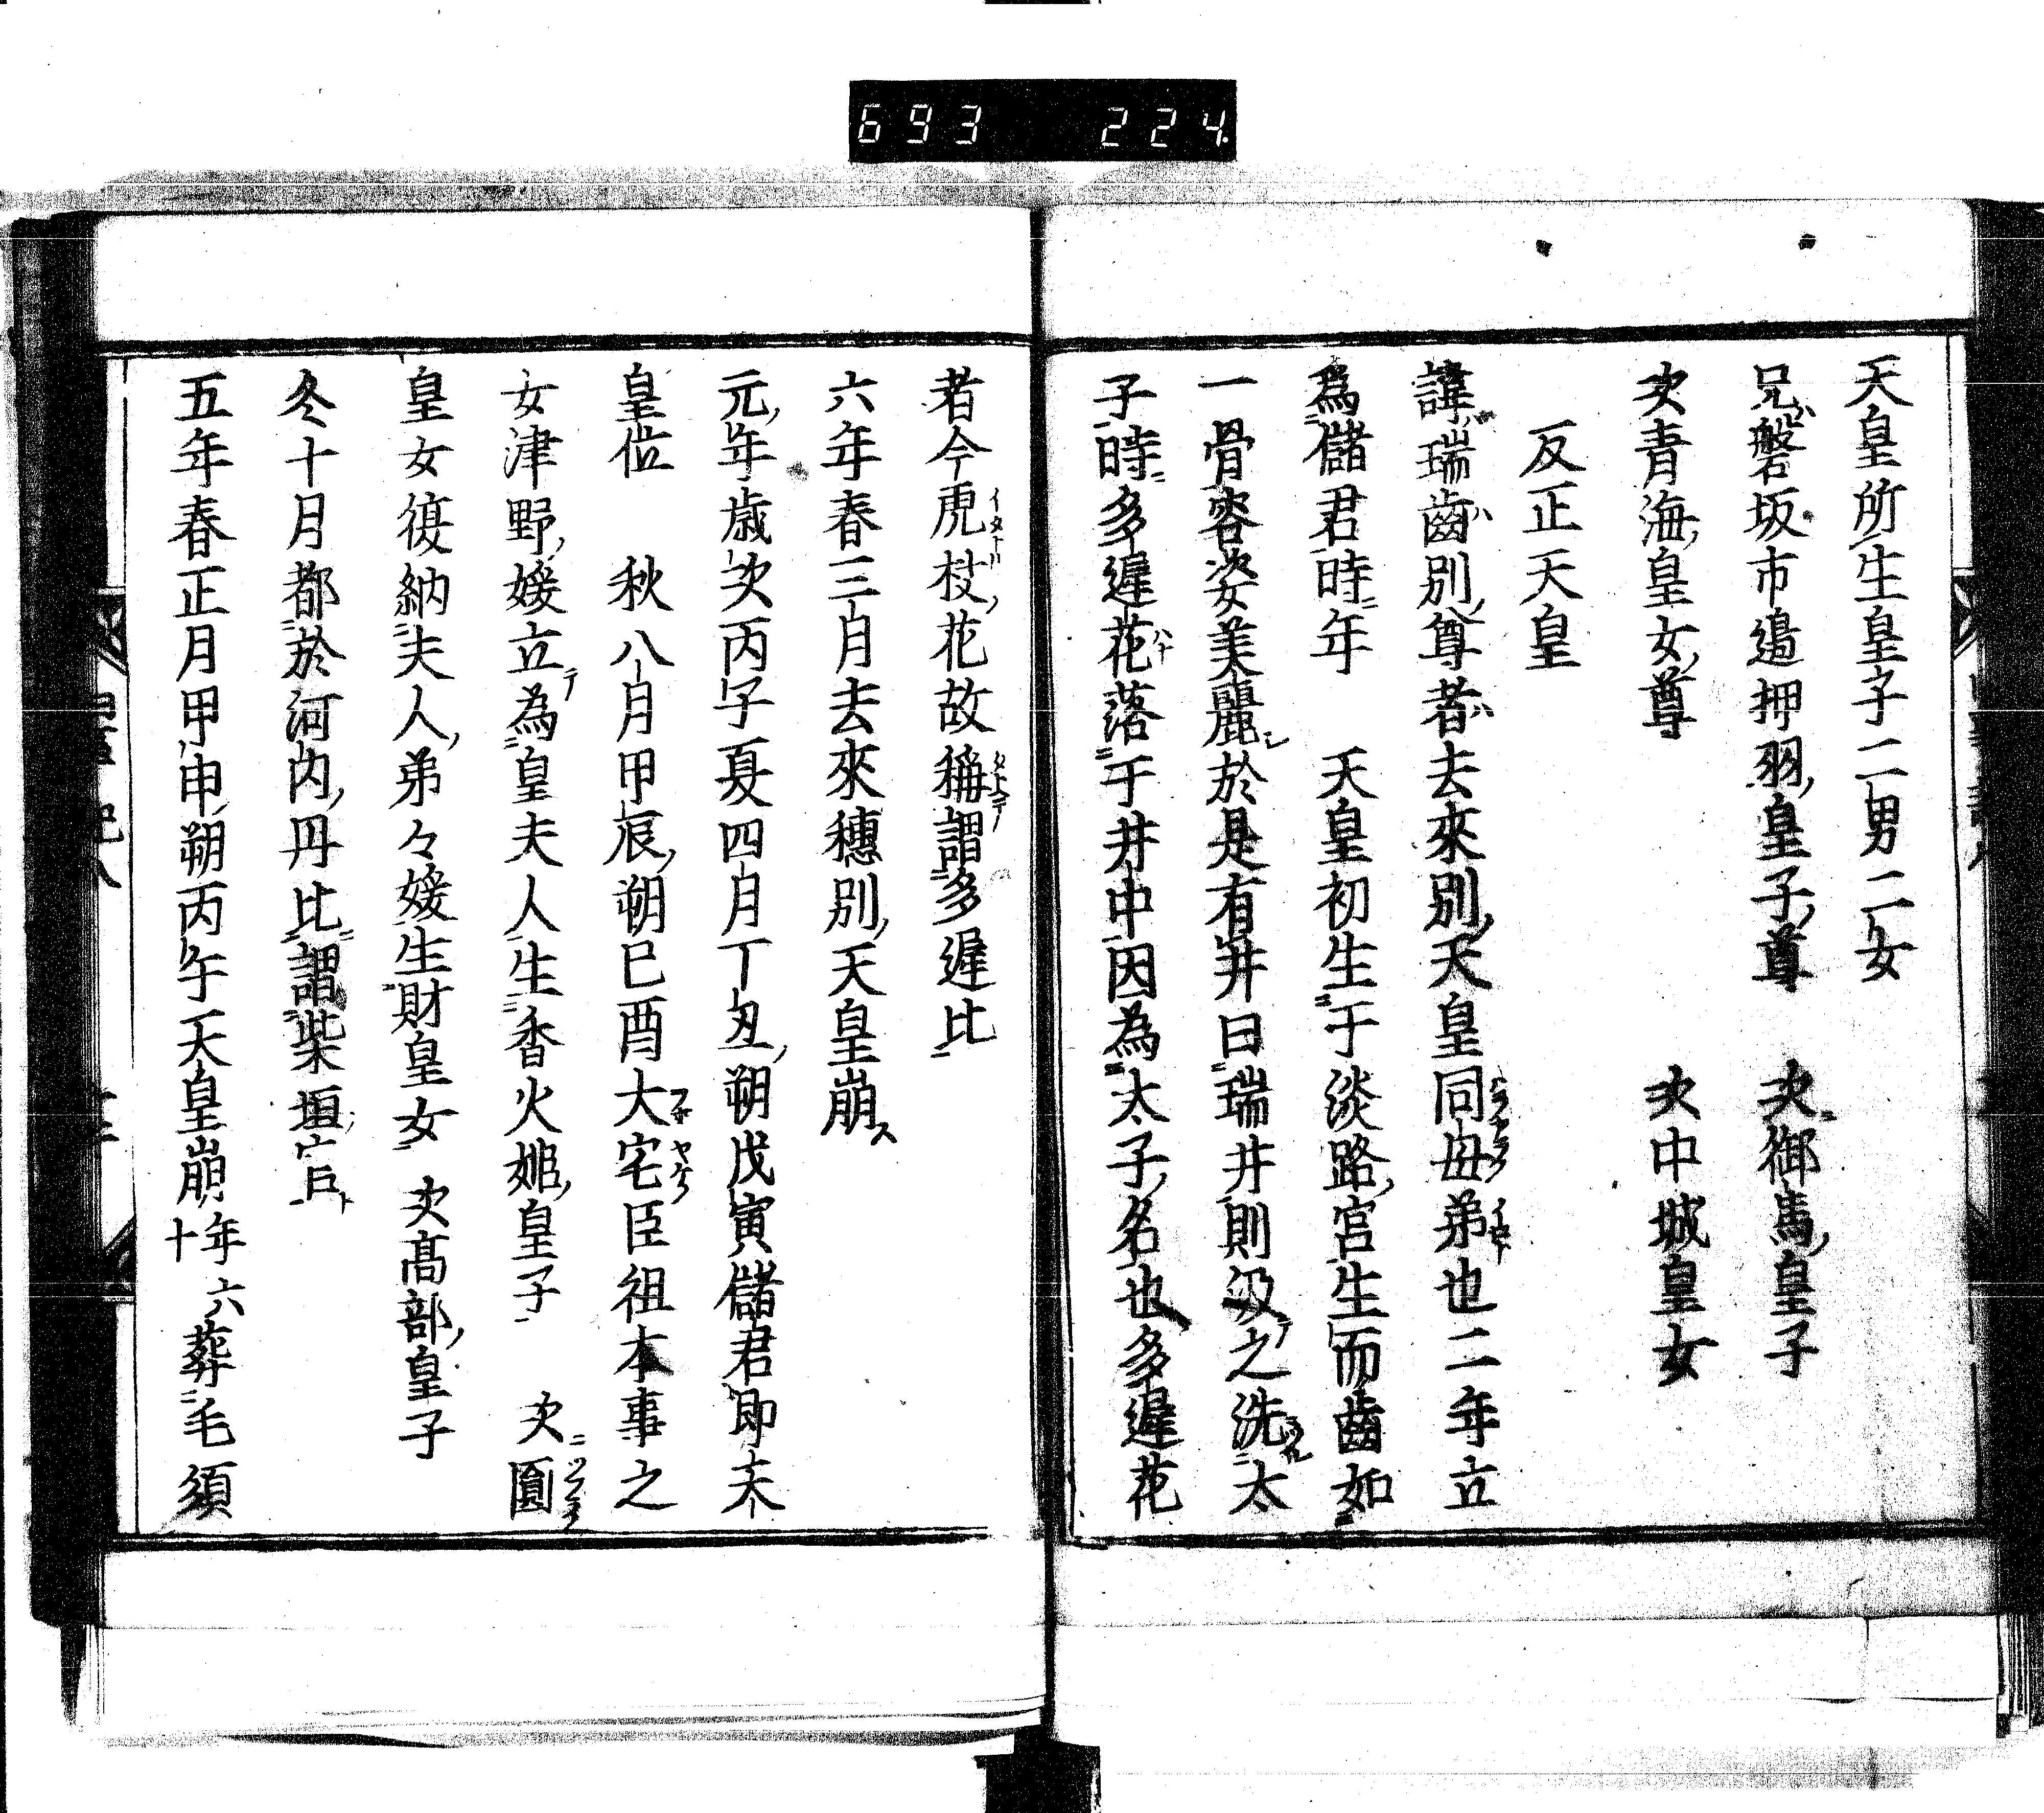 693 224
天皇所生皇子二男二女
兄磐坂市邉押羽皇子尊 次御馬皇子
次青海皇女尊 次中城皇女
反正天皇
諱瑞齒別尊者去來別天皇同母弟也二年立
為儲君時年 天皇初生于淡路宮生而齒如
一骨容姿美麗於是有井曰瑞井則汲之洗太
子時多遲花落于井中因為太子名也多遲花
者今虎杖花故稱謂多遲比
六年春三月去來穗別天皇崩
元年歳次丙子夏四月丁丑朔戊寅儲君即天
皇位 秋八月甲辰朔己酉大宅臣祖木事之
女津野媛立為皇夫人生香火姫皇子 次圓
皇女復納夫人弟々媛生財皇女 次髙部皇子
冬十月都於河内丹比謂柴垣宮
五年春正月甲申朔丙午天皇崩年六十葬毛須